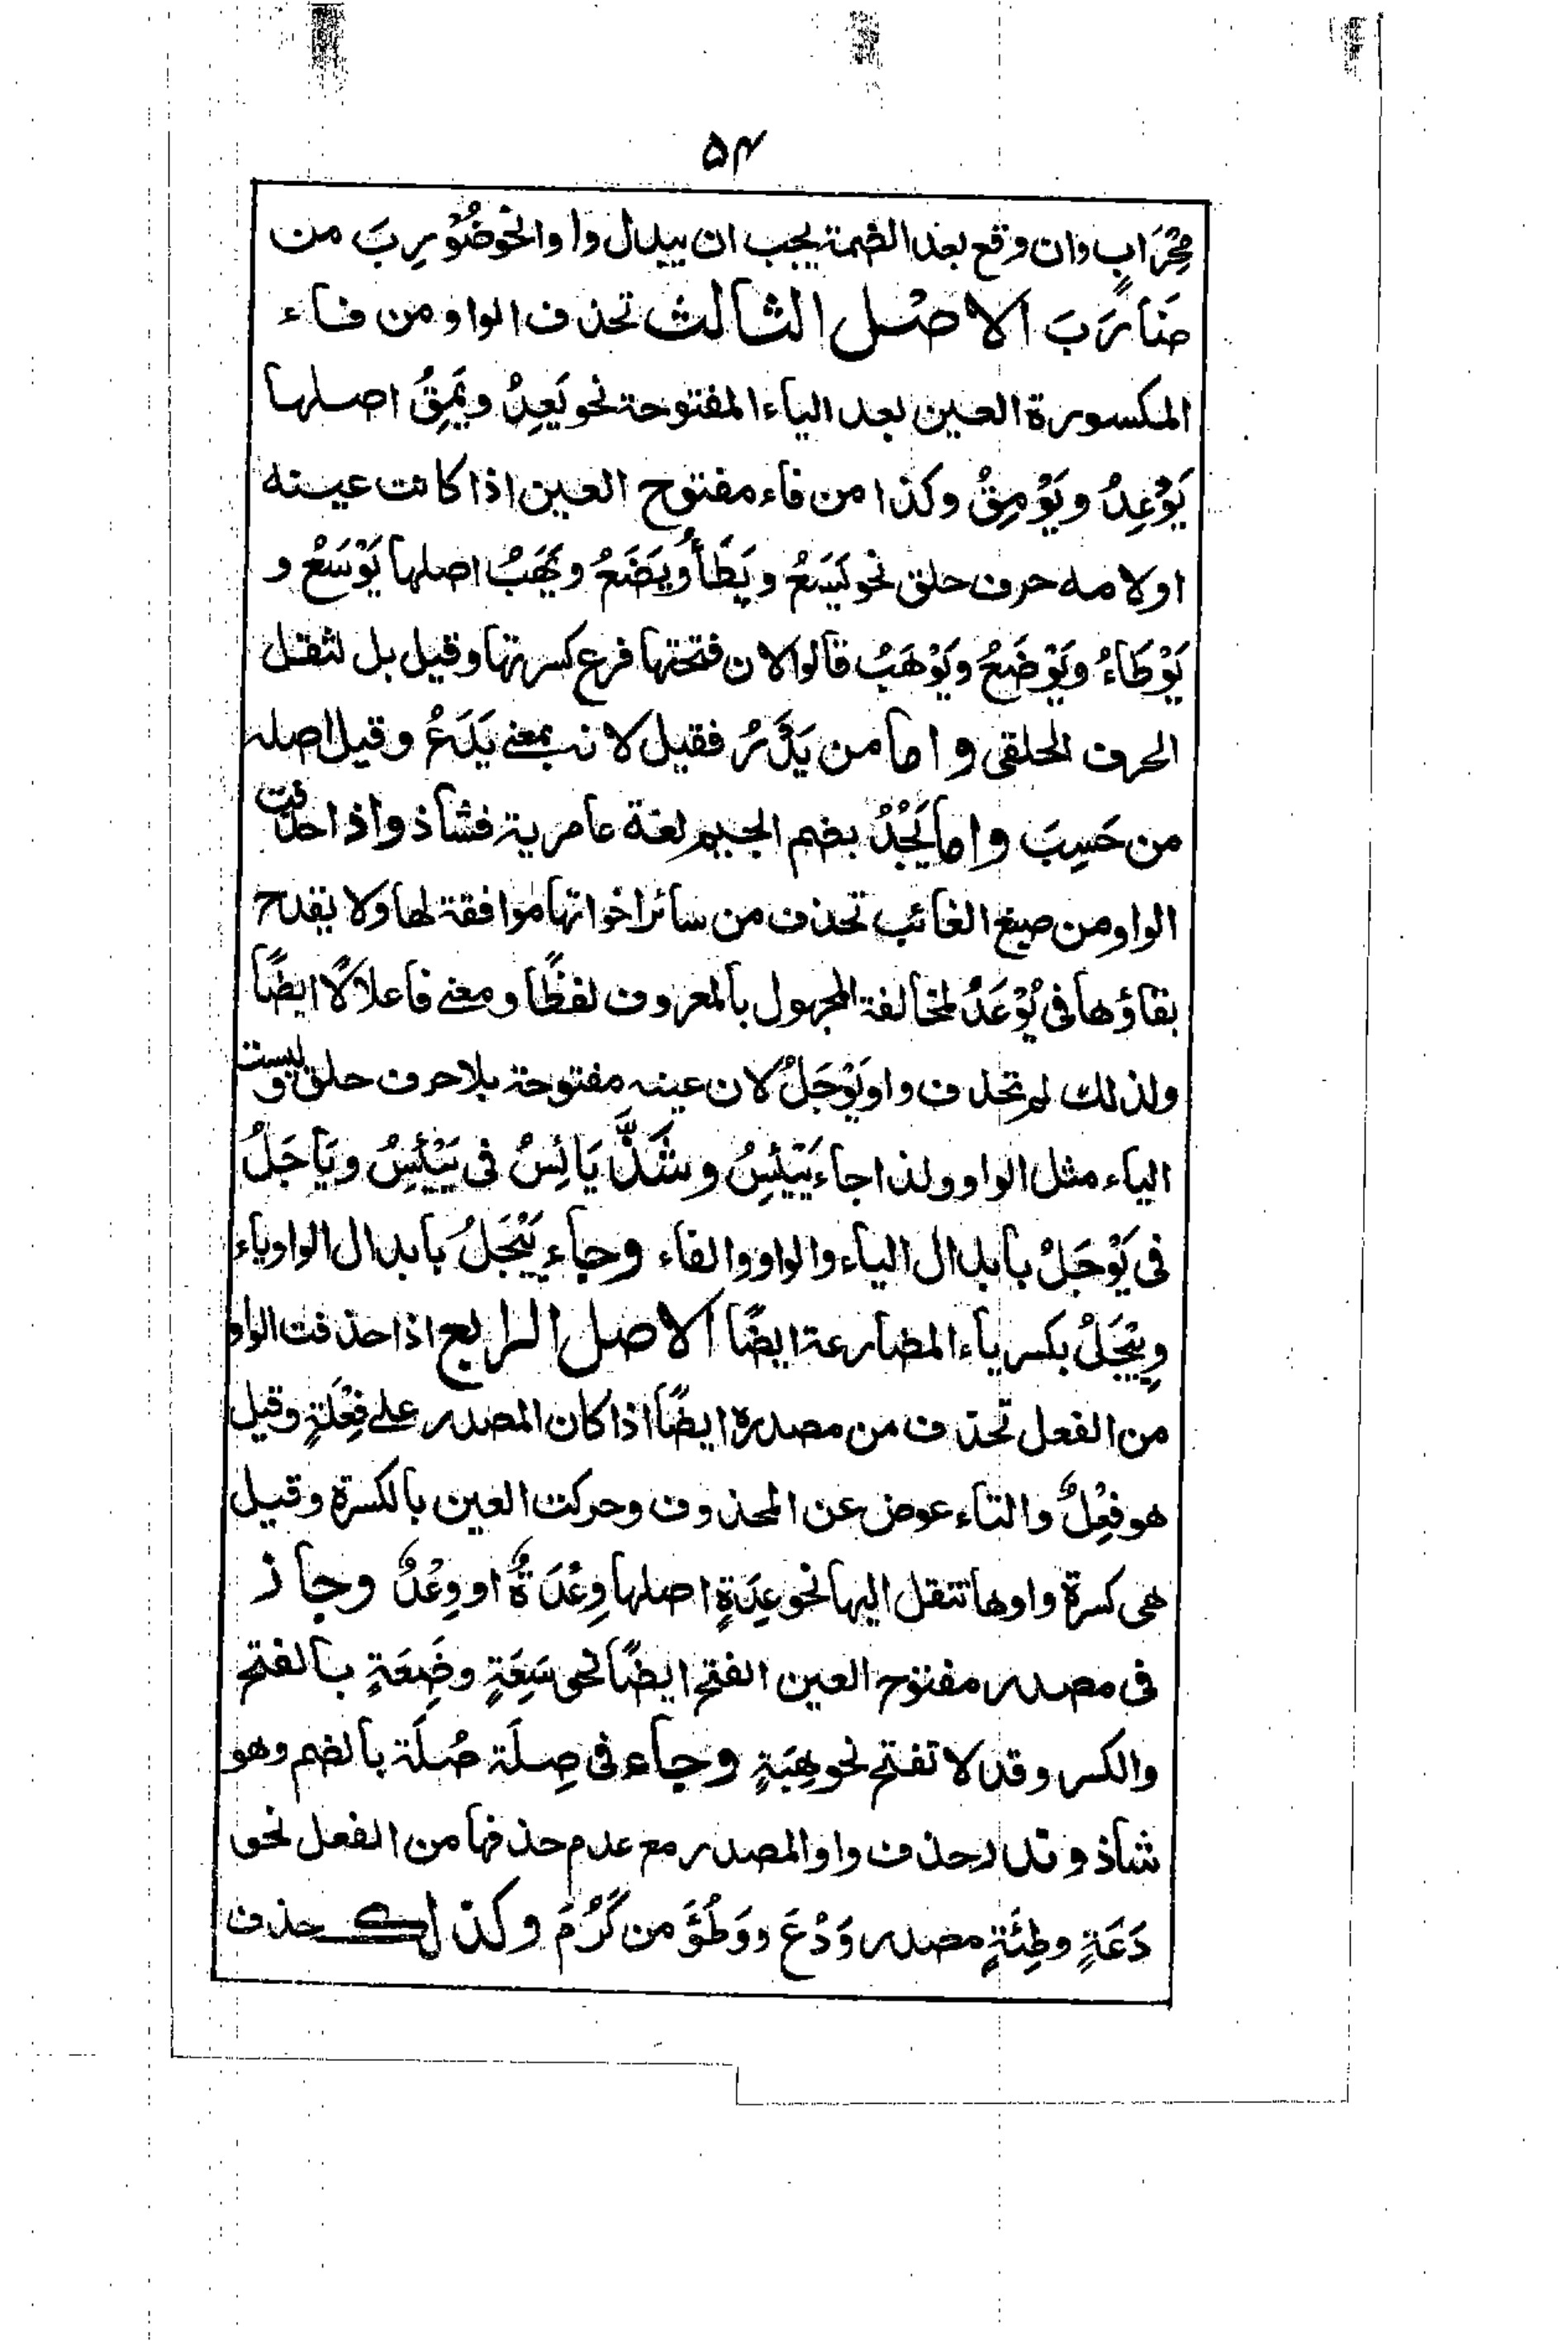 ۵۴
مِحْرَابٍ وان وقع بعد الضمة يجب ان يبدل واوا نحو ضُوْرِبَ من
ضَارَبَ الاصل الثالث تحذف الواو من فاء
المكسورة العين بعد الياء المفتوحة نحو يَعِدُ ويَمِقُ اصلها
يَوْعِدُ ويَوْمِقُ وكذا من فاء مفتوح العين اذا كانت عينه
اولامه حرف حلق نحو يَسَعُ ويَطَأُ ويَضَعُ ويَهَبُ اصلها يَوْسَعُ و
يَوْطَاءُ ويَوْضَعُ ويَوْهَبُ قالوا لان فتحتها فرع كسرتها وقيل بل لثقل
الحرف الحلقى واما من يَذَرُ فقيل لانه بمعنے يَدَعُ وقيل اصله
من حَسِبَ واما يَجُدُ بضم الجيم لغة عامرية فشاذ واذا حذفت
الواو من صيغ الغائب تحذف من سائر اخواتها موافقة لها ولا يقدح
بقاؤها فى يُوْعَدُ لمخالفة المجهول بالمعروف لفظًا ومعنے فاعلالًا ايضًا
ولذلك لم تحذف واو يَوْجَلُ لان عينه مفتوحة بلا حرف حلق وليست
الياء مثل الواو ولذا جاء يَيْئِسُ وشَذَّ يَائِسُ فى يَيْئِسُ ويَاجَلُ
فى يَوْجَلُ بابدال الياء والواو والفاء وجاء يَيْجَلُ بابدال الواو ياء
ويِيْجَلُ بكسر ياء المضارعة ايضًا الاصل الرابع اذا حذفت الواو
من الفعل تحذف من مصدره ايضًا اذا كان المصدر على فِعْلَةٍ وقيل
هو فِعْلٌ والتاء عوض عن المحذوف وحركت العين بالكسرة وقيل
هى كسرة واوها تنقل اليها نحو عِدَةٍ اصلها وِعْدَةٌ او وِعْدٌ وجاز
فى مصدر مفتوح العين الفتح ايضًا نحو سَِعَةٍ وضَِعَةٍ بالفتح
والكسر وقد لا تفتح نحو هِبَةٍ وجاء فى صِلَة صُلَة بالضم وهو
شاذ وقد حذف واو المصدر مع عدم حذفها من الفعل نحو
دَعَةٍ وطِئَةٍ مصدر وَدُعَ ووَطُؤَ من كَرُمَ وكذلك حذف